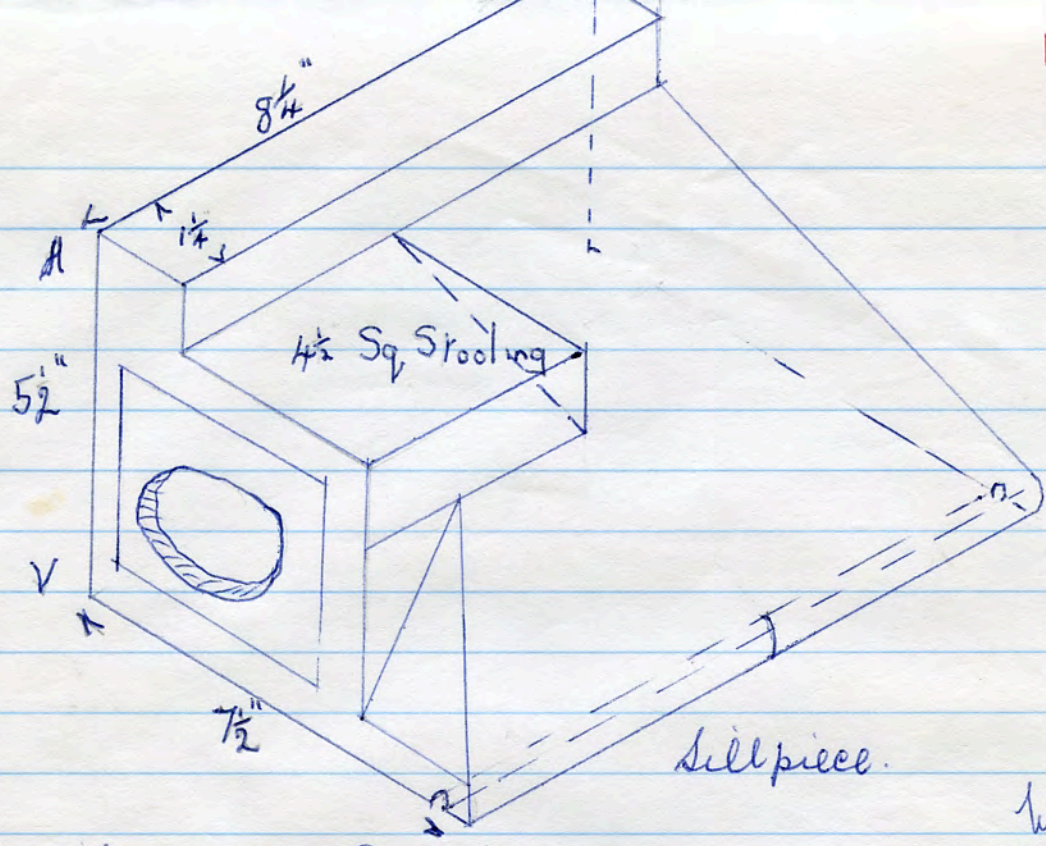 8¼"
1¼
4½ Sq Stooling
5½"
7½"
Sillpiece.